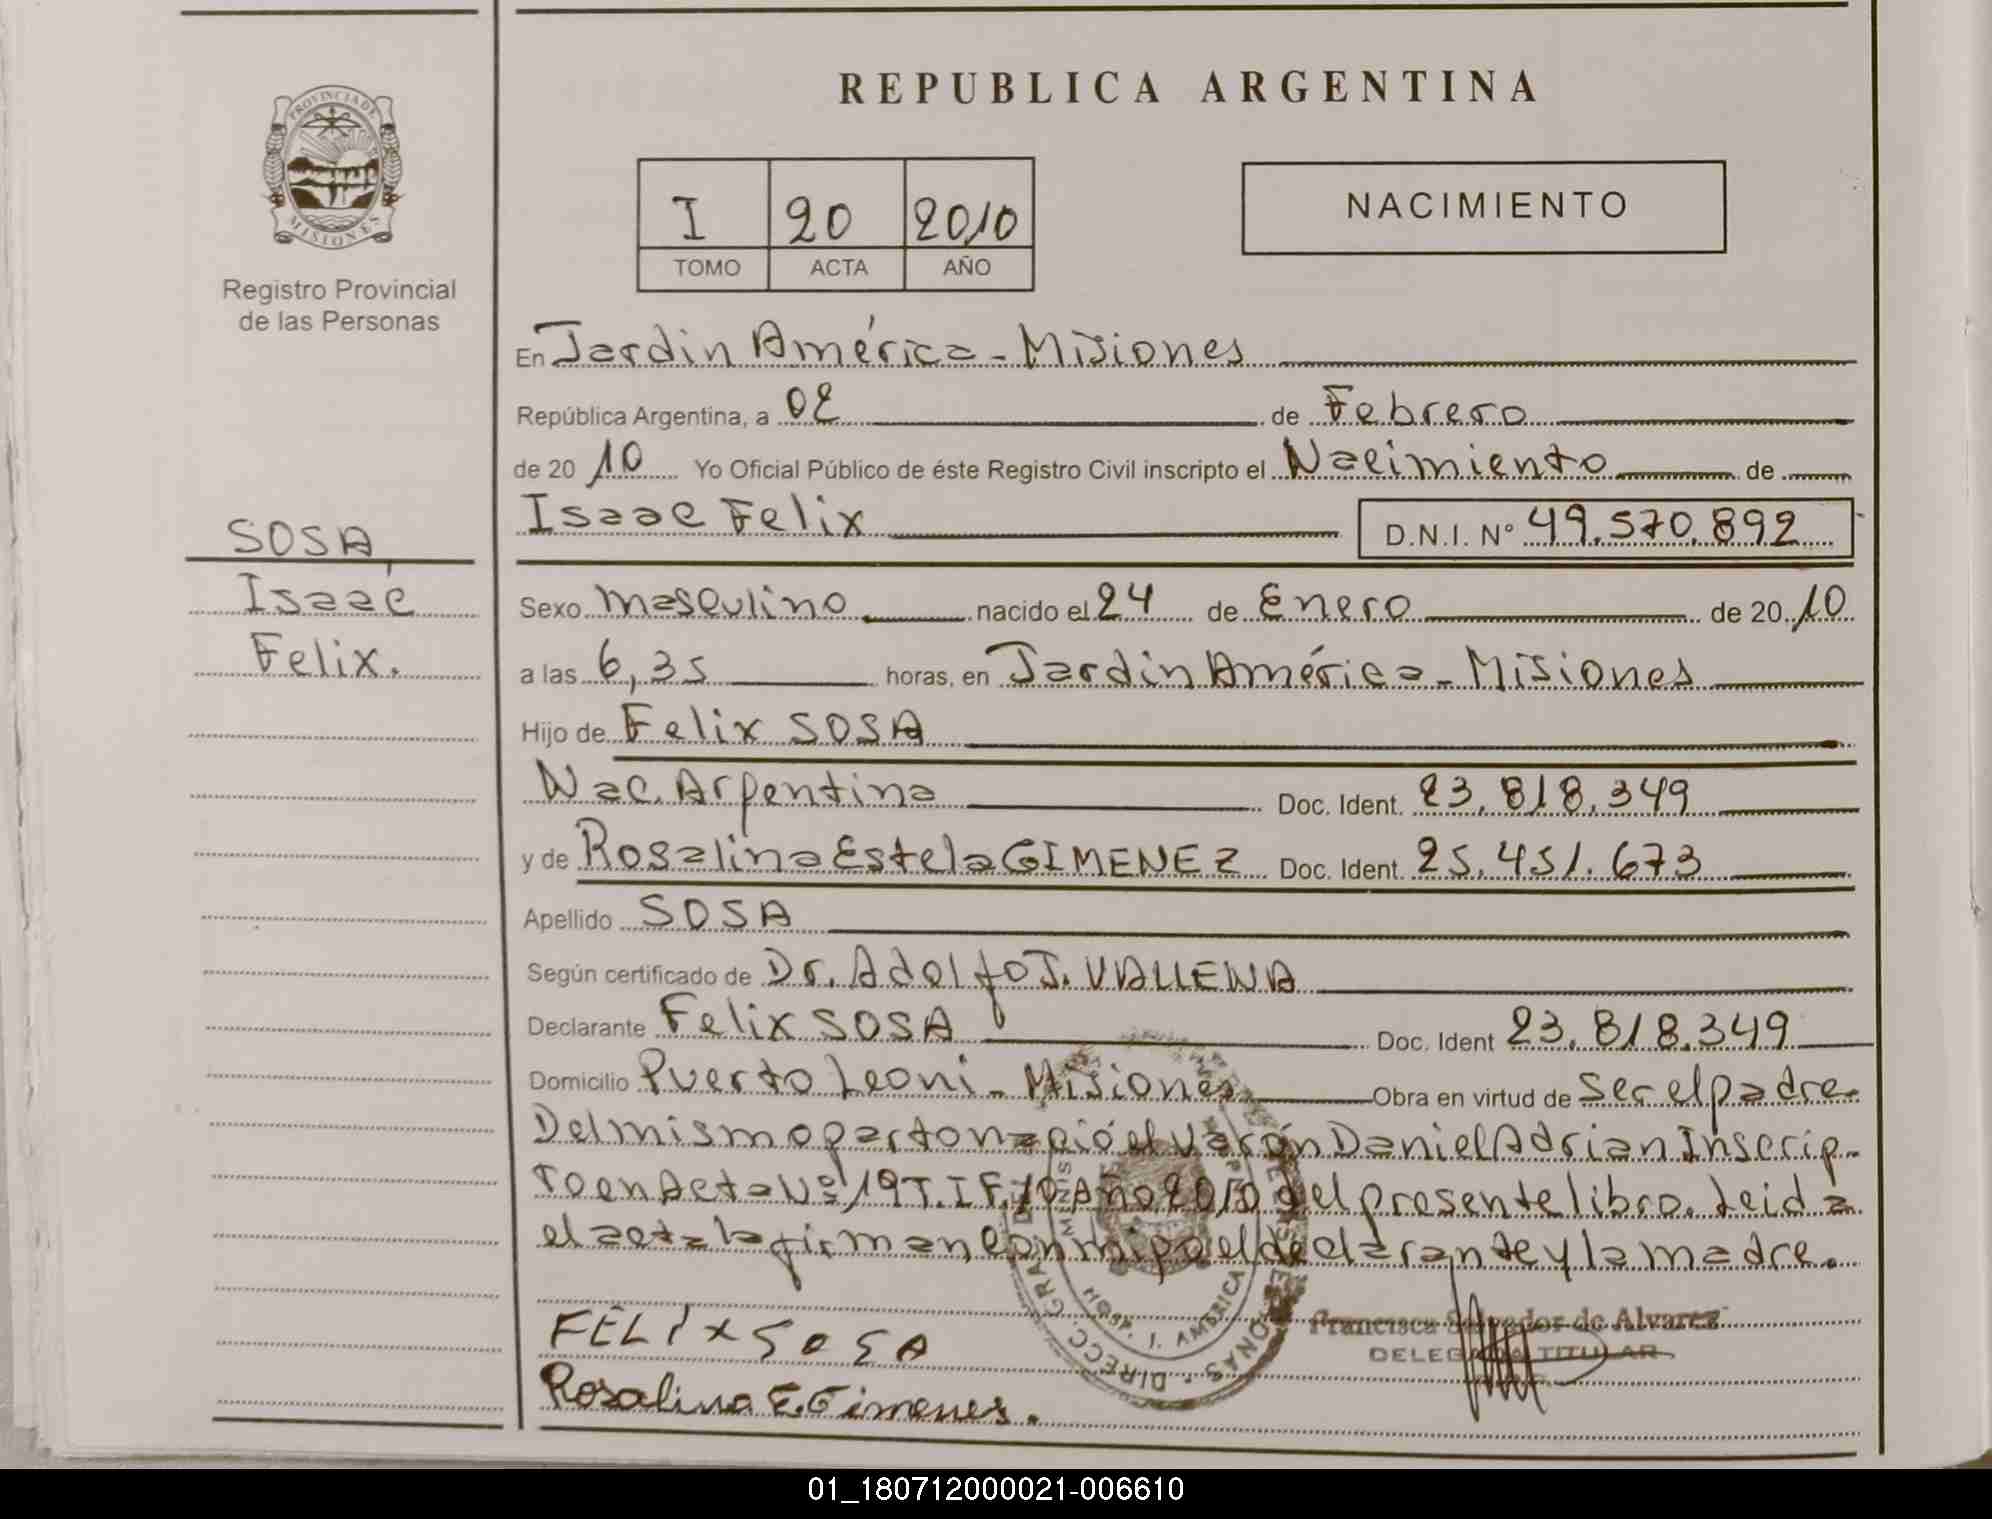 PROVINCIA DE
MISIONES
Registro Provincial
de las Personas
SOSA
Isaác
Felix.
REPUBLICA ARGENTINA
I 20 2010
TOMO ACTA AÑO
NACIMIENTO
En Jardin América - Misiones
República Argentina, a 02 de Febrero
de 20 10 Yo Oficial Público de éste Registro Civil inscripto el Nacimiento de
Isaac Felix D.N.I. Nº 49.570.892
Sexo masculino nacido el 24 de Enero de 20 10
a las 6,35 horas, en Jardin América - Misiones
Hijo de Felix SOSA
Nac. Argentina Doc. Ident. 23.818.349
y de Rosalina Estela GIMENEZ Doc. Ident. 25.451.673
Apellido SOSA
Según certificado de Dr. Adolfo J. VALLENA
Declarante Felix SOSA Doc. Ident 23.818.349
Domicilio Puerto Leoni - Misiones Obra en virtud de ser el padre
Del mismo parto nació el varón Daniel Adrian Inscrip-
to en Acta Nº 19 T. I F. 10 Año 2010 del presente libro. Leida
el acta la firman con migo el declarante y la madre.
FELIX SOSA
Rosalina E. Gimenes.
HOSP. J. AMERICA
DIRECC. GRAL.
Francisca Salvador de Alvarez
DELEGADA TITULAR
01_180712000021-006610